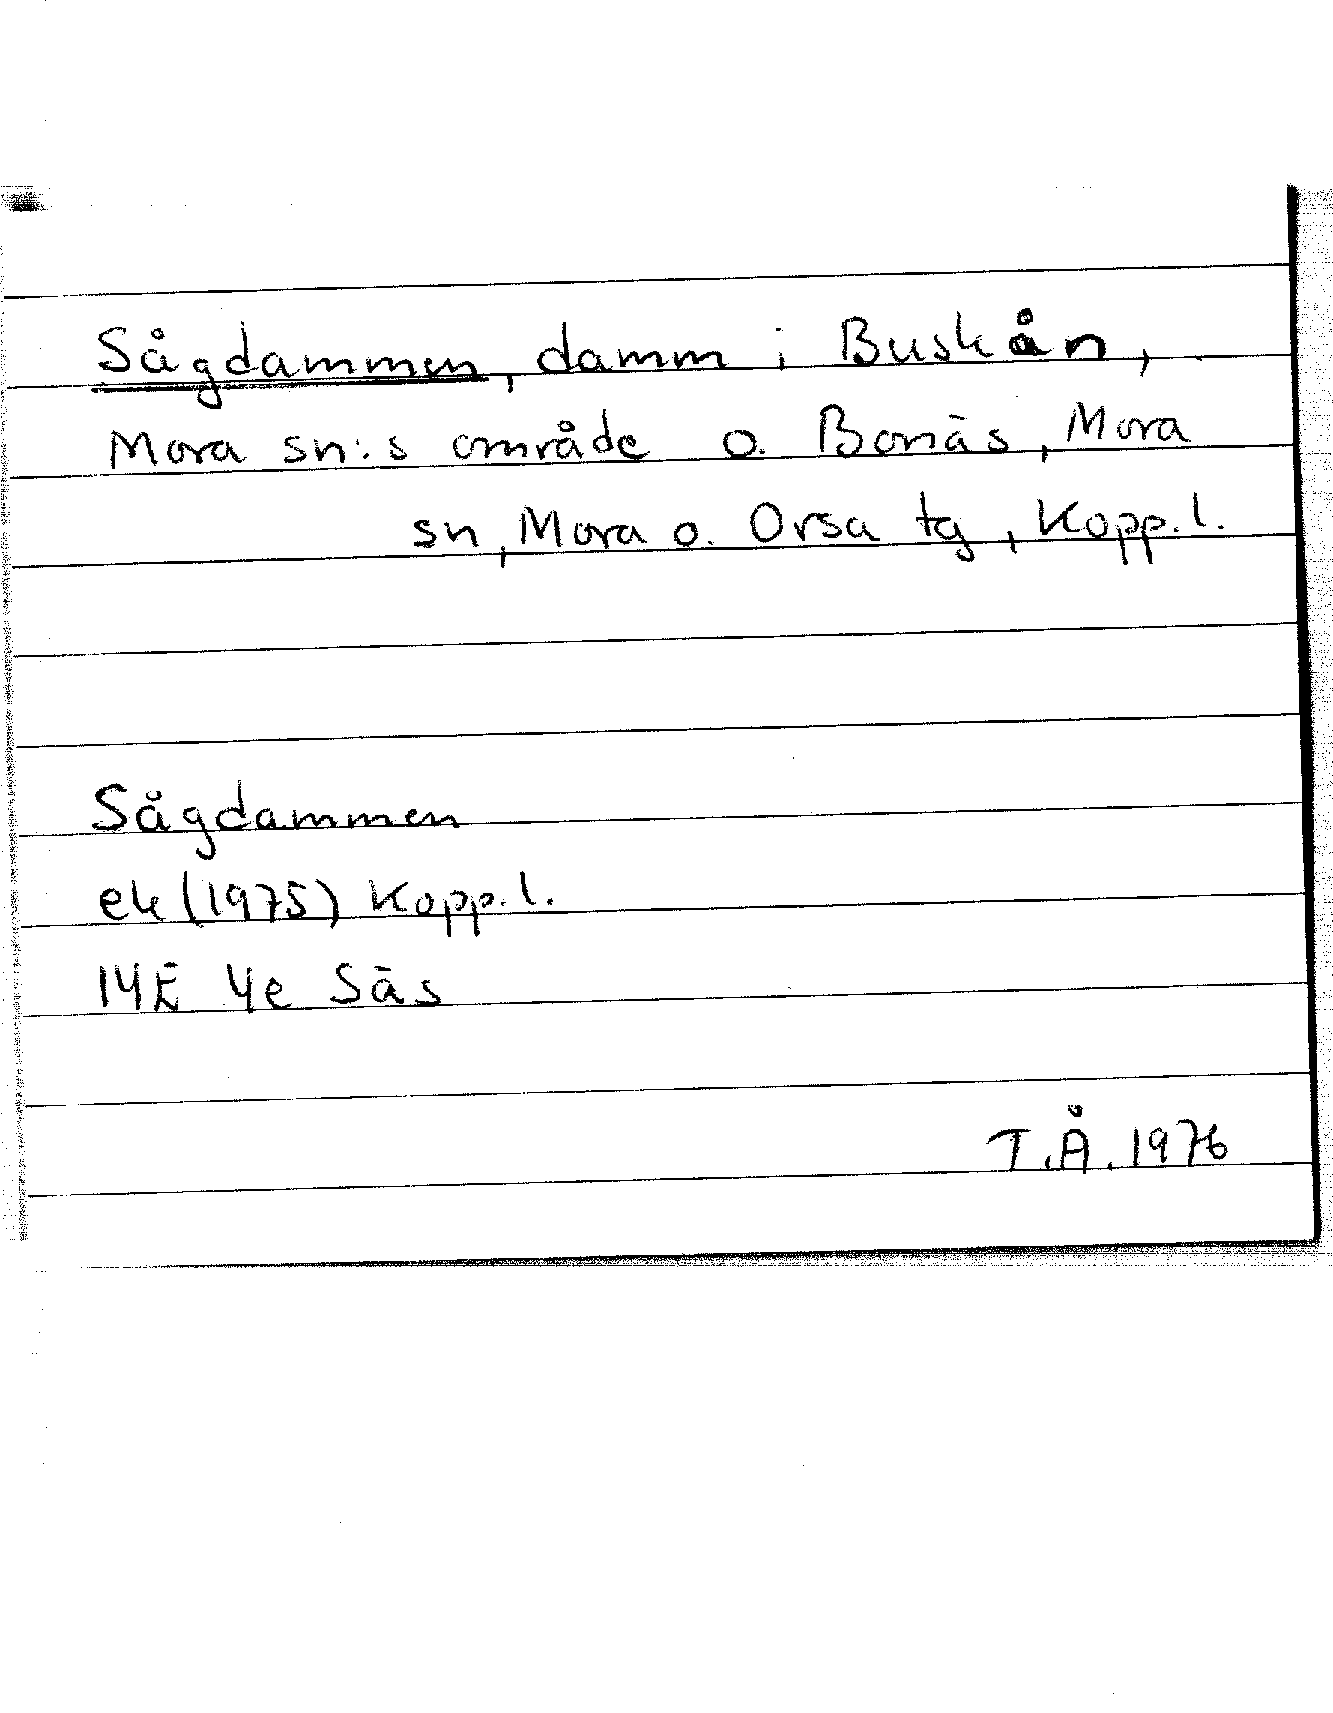 Sågdammen, damm i Buskån,
Mora sn:s område o. Bonäs, Mora
sn, Mora o. Orsa tg, Kopp. l.
Sågdammen
ek (1975) Kopp. l.
14E 4e Säs
T.Å. 1976